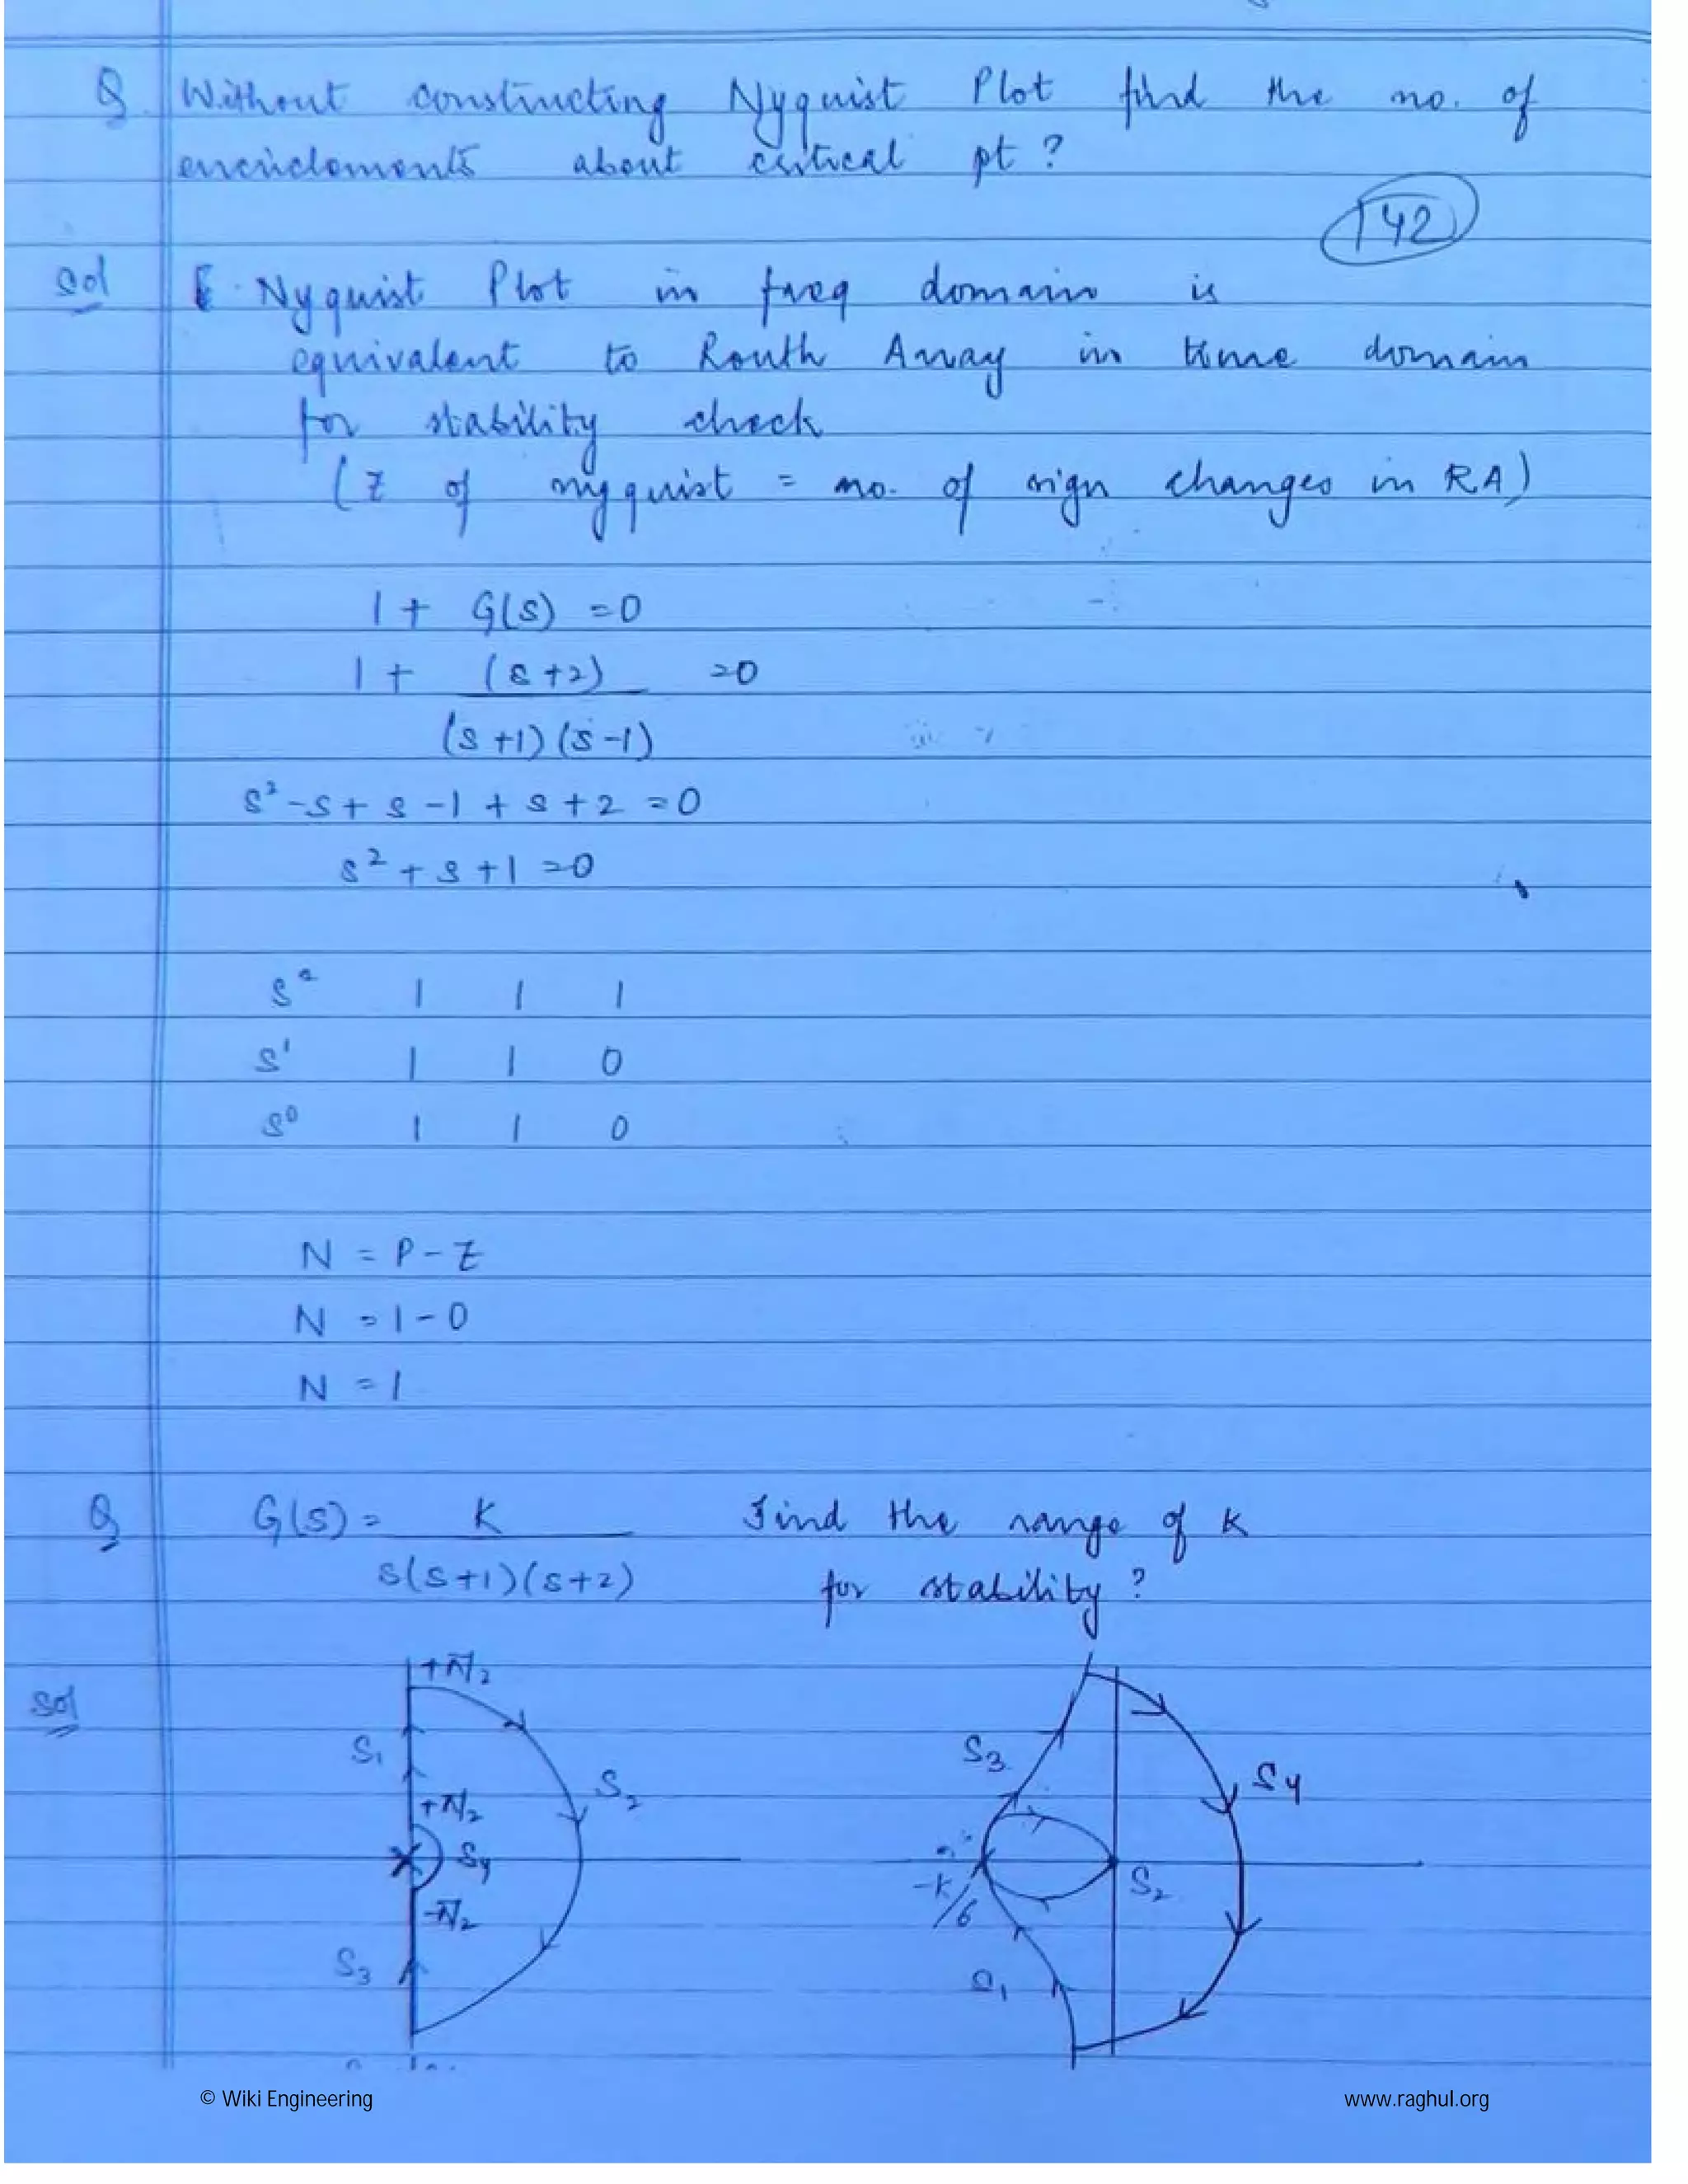 Q Without constructing Nyquist Plot find the no. of
encirclements about critical pt ?
142
Sol Nyquist Plot in freq domain is
equivalent to Routh Array in time domain
for stability check
(Z of nyquist = no. of sign changes in RA)
1 + G(S) =0
1 + (s+2) =0
(s+1)(s-1)
s²-s+s-1+s+2=0
s²+s+1=0
s² 1 1 1
s¹ 1 1 0
s⁰ 1 1 0
N = P-Z
N = 1-0
N = 1
Q G(s)= K Find the range of K
s(s+1)(s+2) for stability ?
Sol
+π/2
S₁
S₃
S₂
S4
+π/2
S4
-K/6
S₂
-π/2
S₃
S₁
© Wiki Engineering www.raghul.org